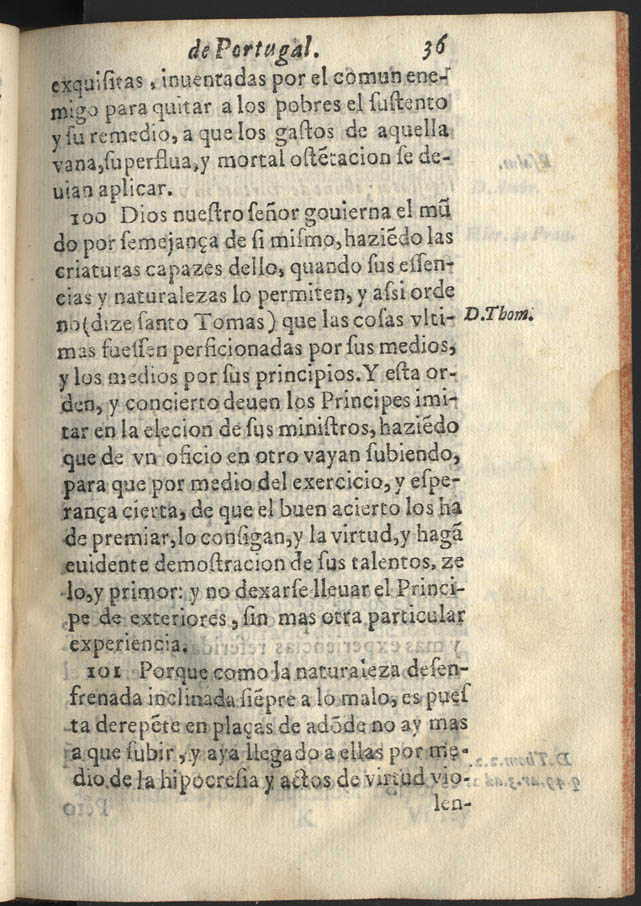 de Portugal. 36
exquiſitas, inuentadas por el comun ene-
migo para quitar a los pobres el ſuſtento
y ſu remedio, a que los gaſtos de aquella
vana, ſuperflua, y mortal oſtẽtacion ſe de-
uian aplicar.
100 Dios nueſtro ſeñor gouierna el mũ
do por ſemejança de ſi miſmo, haziẽdo las
criaturas capazes dello, quando ſus eſſen-
cias y naturalezas lo permiten, y aſsi orde
no (dize ſanto Tomas) que las coſas vlti-
D. Thom.
mas fueſſen perficionadas por ſus medios,
y los medios por ſus principios. Y eſta or-
den, y concierto deuen los Principes imi-
tar en la elecion de ſus miniſtros, haziẽdo
que de vn oficio en otro vayan ſubiendo,
para que por medio del exercicio, y eſpe-
rança cierta, de que el buen acierto los ha
de premiar, lo conſigan, y la virtud, y hagã
euidente demoſtracion de ſus talentos, ze
lo, y primor: y no dexarſe lleuar el Princi-
pe de exteriores, ſin mas otra particular
experiencia.
101 Porque como la naturaleza deſen-
frenada inclinada ſiẽpre a lo malo, es pueſ
ta derepẽte en plaças de adõde no ay mas
a que ſubir, y aya llegado a ellas por me-
dio de la hipocreſia y actos de virtud vio-
len-